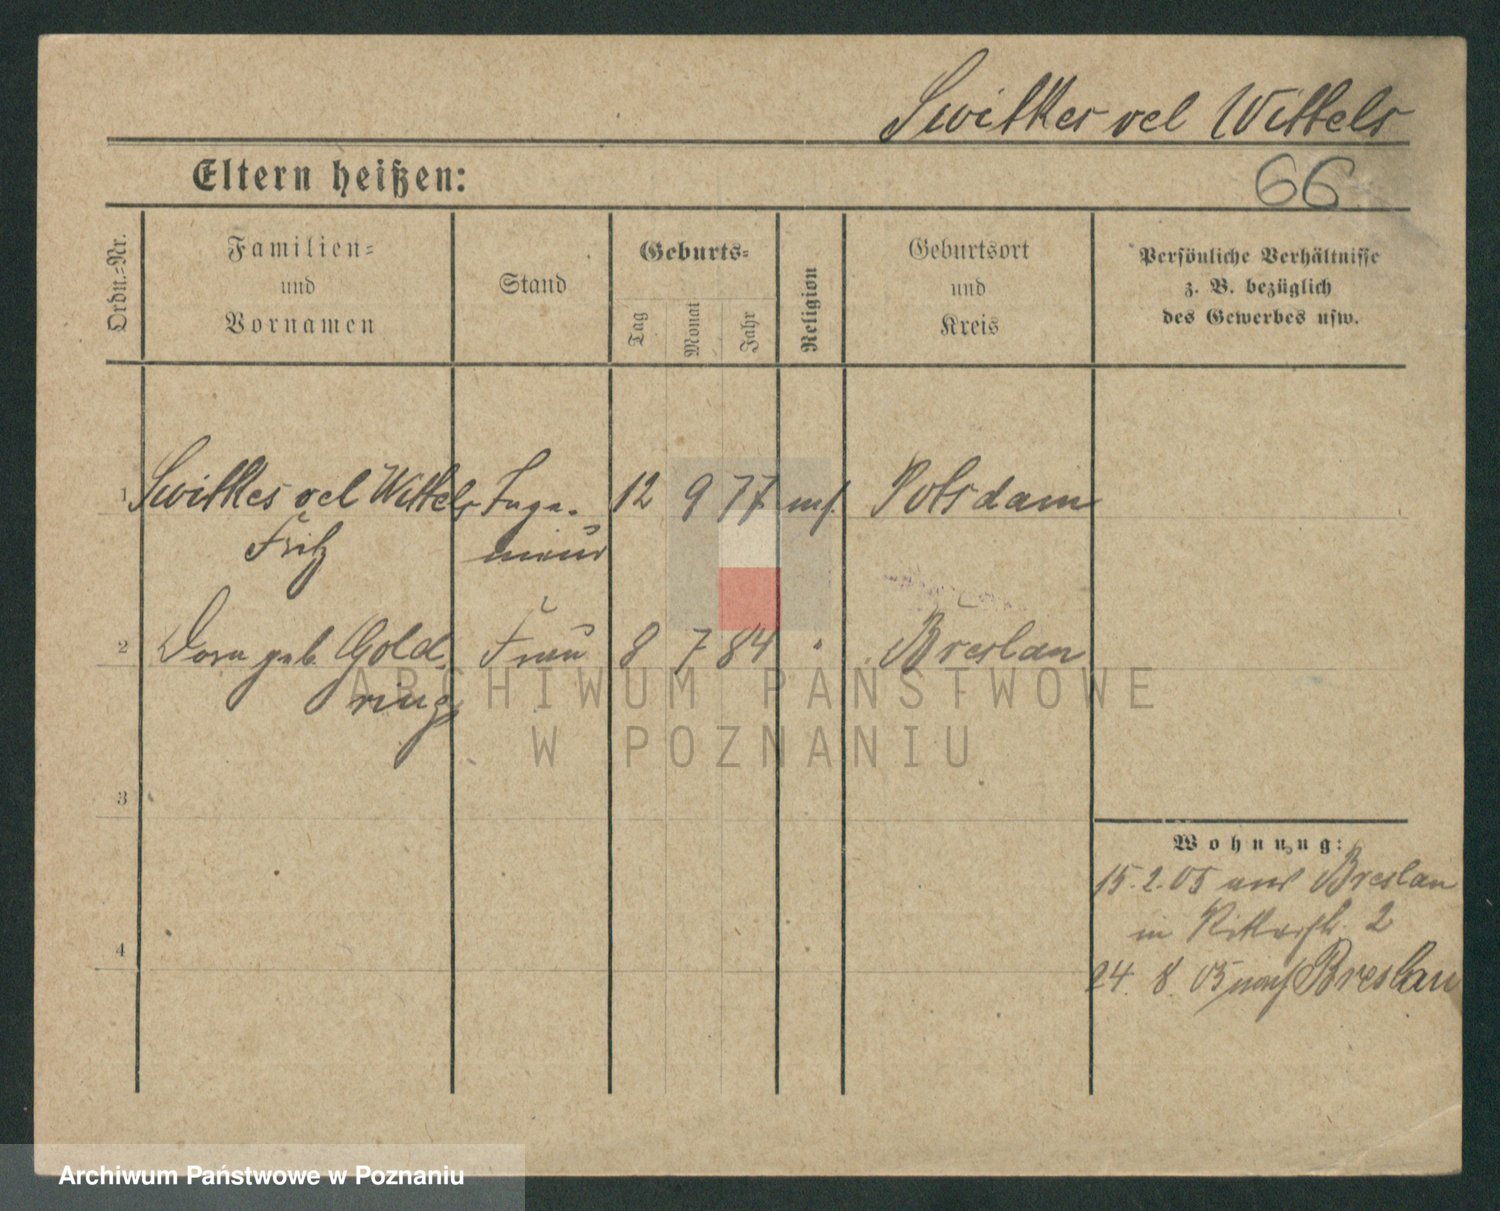 Switkes vel Wittels
Eltern heißen:
66
Ordn.-Nr.
Familien-
und
Vornamen
Stand
Geburts-
Tag
Monat
Jahr
Religion
Geburtsort
und
Kreis
Persönliche Verhältnisse
z. B. bezüglich
des Gewerbes usw.
1 Switkes vel Wittels Inge- 12 9 77 mos. Potsdam
Fritz nieur
2 Dora geb. Gold- Frau 8 7 84 " Breslau
ring
ARCHIWUM PAŃSTWOWE
W POZNANIU
3
Wohnung:
15. 2. 05 aus Breslau
in Ritterstr. 2
4
24. 8. 05 nach Breslau
Archiwum Państwowe w Poznaniu